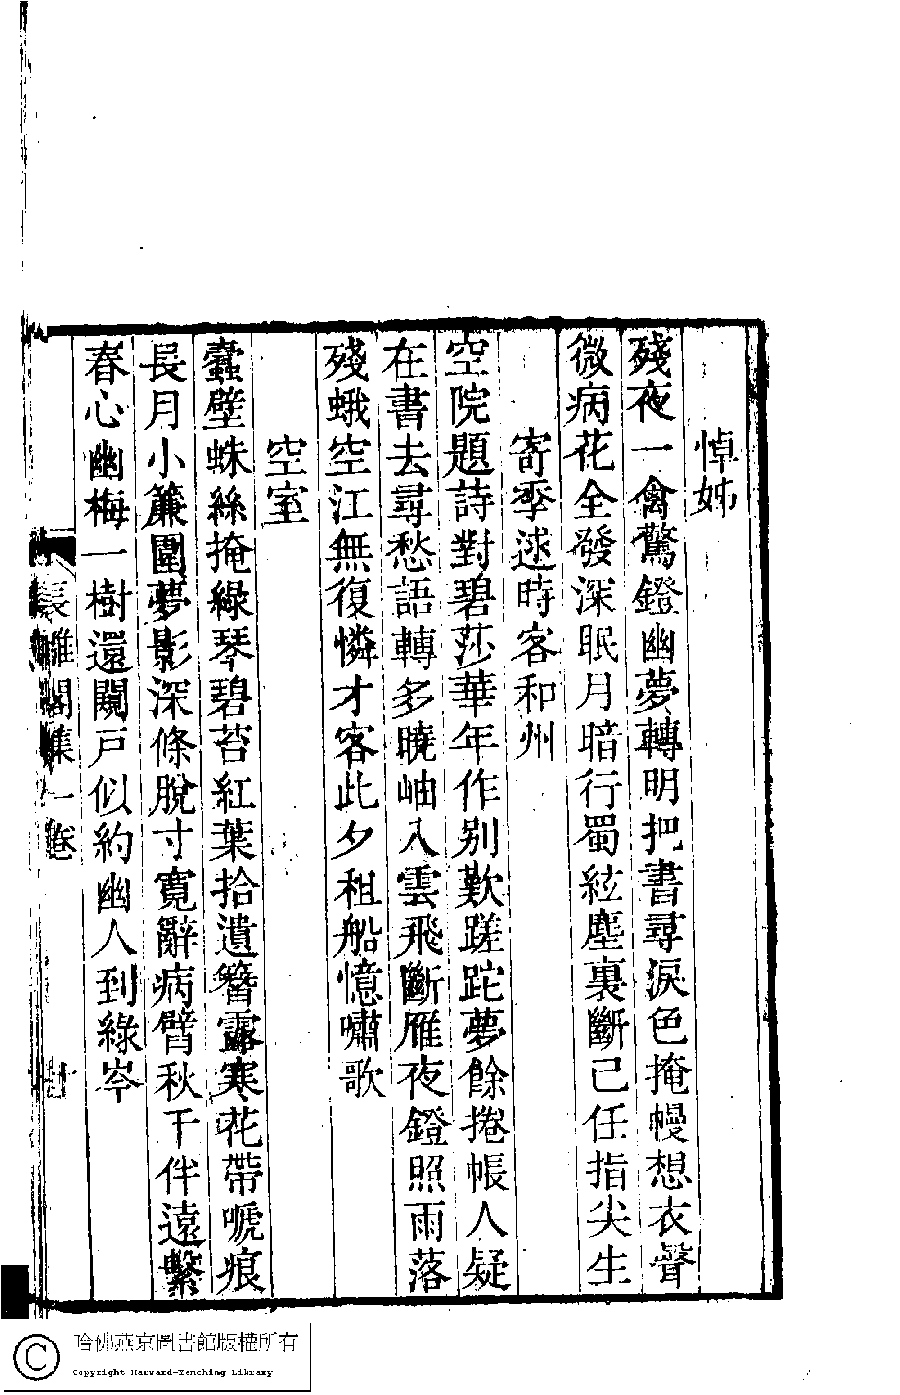 悼姊
殘夜一禽驚鐙幽夢轉明把書尋淚色掩幔想衣聲
微病花全發深眠月暗行蜀絃塵裏斷己任指尖生
寄季逑時客和州
空院題詩對碧莎華年作别歎蹉跎夢餘捲帳人疑
在書去尋愁語轉多曉岫入雲飛斷雁夜鐙照雨落
殘蛾空江無復憐才客此夕租船憶嘯歌
空室
蠹壁蛛絲掩綠琴碧苔紅葉拾遺簪露寒花帶嗁痕
長月小簾圍夢影深條脫寸寬辭病臂秋千伴遠繫
春心幽梅一樹還闚戸似約幽人到綠岑
長離閣集一卷
哈佛燕京圖書館版權所有
Copyright Harvard-Yenching Library